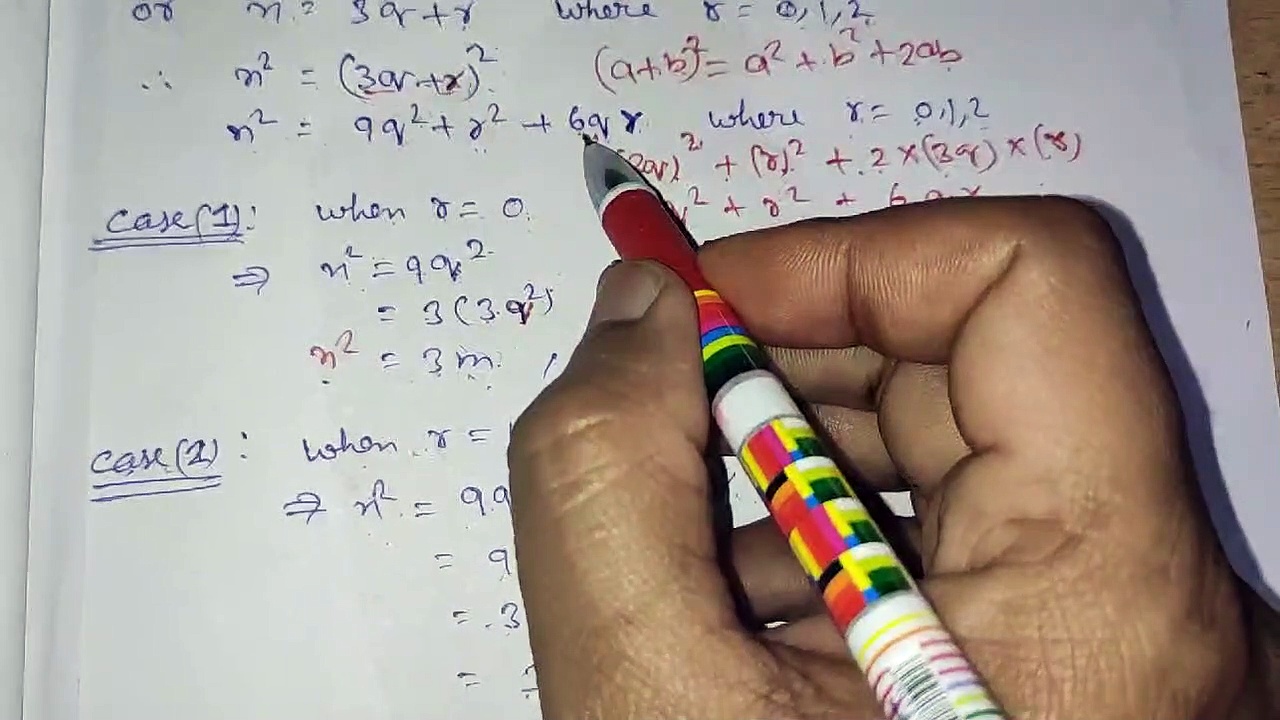 or n = 3q + r where r = 0, 1, 2
∴ n² = (3q + r)² (a+b)² = a² + b² + 2ab
n² = 9q² + r² + 6qr where r = 0, 1, 2
(3q)² + (r)² + 2 × (3q) × (r)
q² + r² + 6qr
case(1): when r = 0.
⇒ n² = 9q²
= 3(3q²)
n² = 3m,
case(2): when r =
⇒ n² = 9q
= 9
= 3
=